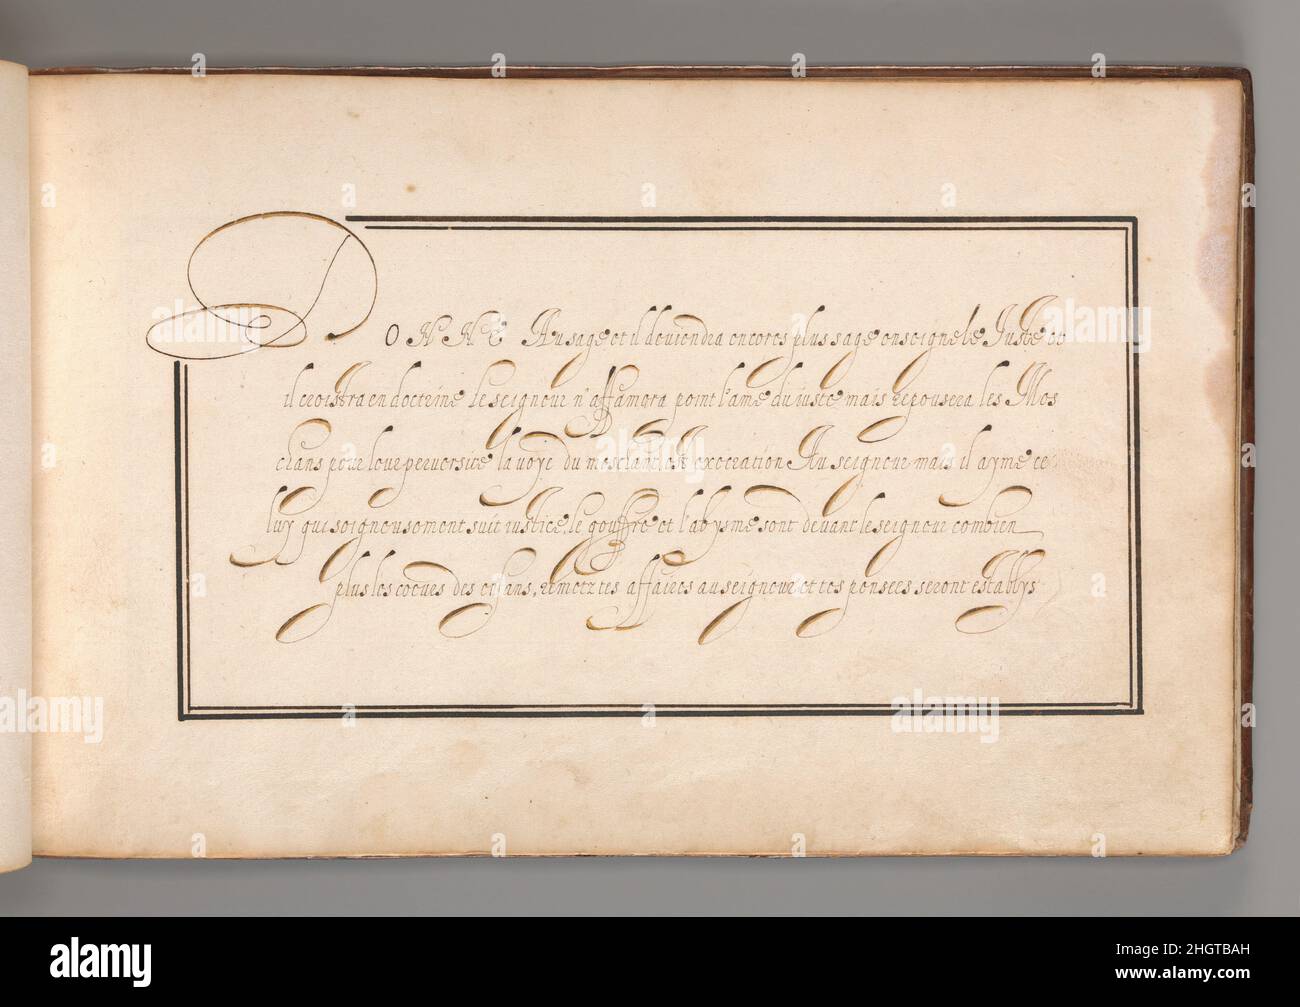 DONNE Au sage et il deviendra encores plus sage enseigne le Juste et
il croistra en doctrine le seigneur n'affamera point l'ame du iuste mais repousera les Mes
chans pour leur perversite la voye du meschant est execration Au seigneur mais il ayme ce
luy qui soigneusement suit iustice, le gouffre et l'abysme sont devant le seigneur combien
plus les coeurs des ... remetz tes affaires au seigneur et tes pensees seront establys
alamy
Image ID: 2HGTBAH
www.alamy.com